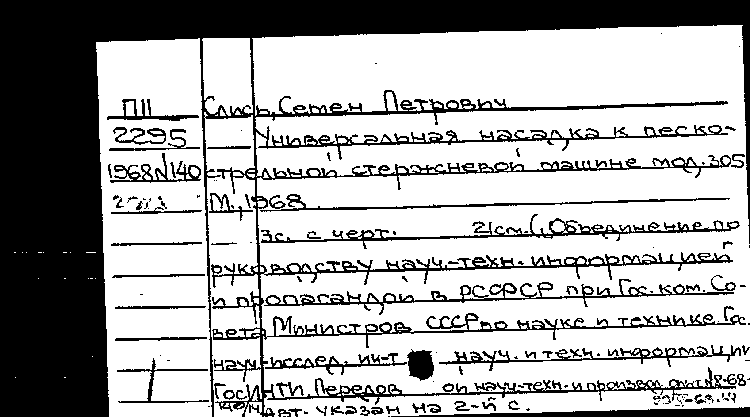 П11 Слись, Семен Петрович
2295 Универсальная насадка к песко-
1968 N140 стрельной стержневой машине мод. 305
М., 1968.
3с. с черт. 21см. (Объединение по
руководству науч.-техн. информацией
и пропагандой в РСФСР при Гос. ком. Со-
вета Министров СССР по науке и технике. Гос.
науч-исслед. ин-т науч. и техн. информации
ГосИНТИ. Передов ой науч.-техн. и производ. опыт N8-68-
Авт. указан на 2-й с.